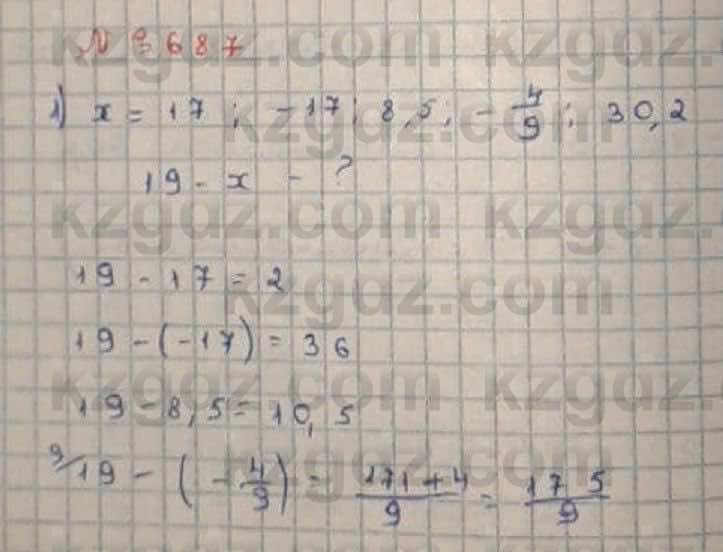 № 3687
1) x = 17; -17; 8,5; -4/9; 30,2
19 - x - ?
19 - 17 = 2
19 - (-17) = 36
19 - 8,5 = 10,5
9/19 - (-4/9) = 171+4/9 = 175/9
kzgdz.com kzgdz.com
kzgdz.com
kzgdz.com kzgdz.com
kzgdz.com
kzgdz.com kzgdz.com
kzgdz.com